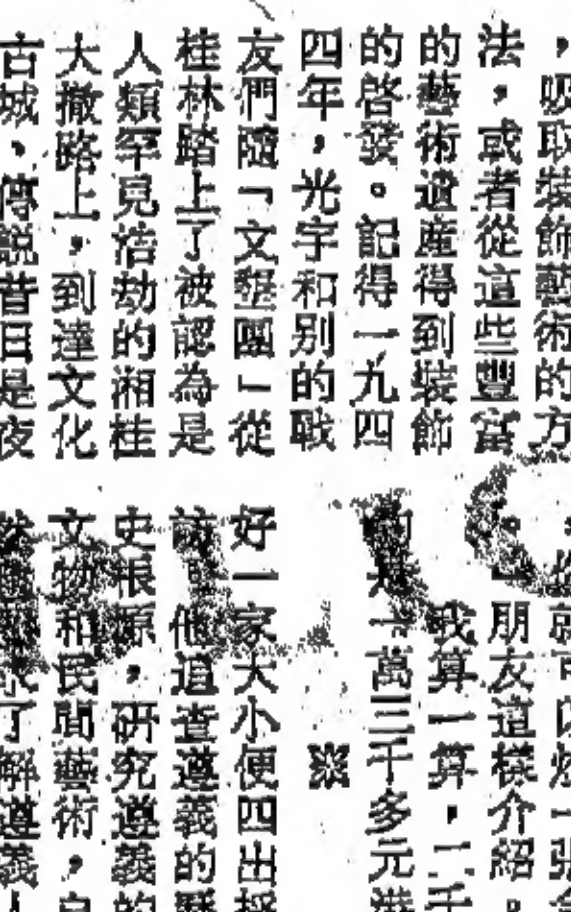 ，吸取裝飾藝術的方
法，或者從這些豐富
的藝術遺產得到裝飾
的啓發。記得一九四
四年，光宇和別的戰
友們隨「文墾團」從
桂林踏上了被認為是
人類罕見浩劫的湘桂
大撤路上，到達文化
古城，傳說昔日是夜
就可以
朋友這樣介紹。
我算一算，二千
一萬三千多元港
※
好一家大小便四出採
他追查遵義的歷
史根源，研究遵義的
文物和民間藝術，自
了解遵義人